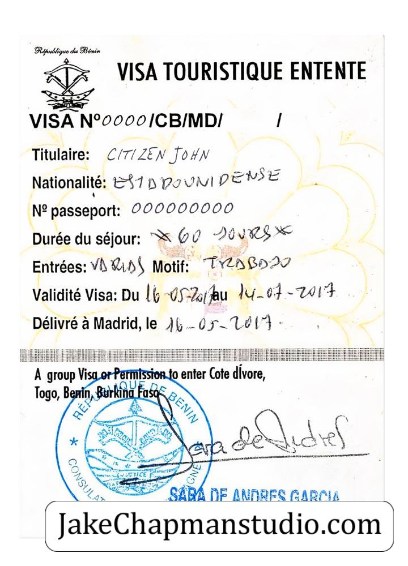 République du Bénin
VISA TOURISTIQUE ENTENTE
VISA Nº 0000/CB/MD/ /
Titulaire: CITIZEN JOHN
Nationalité: ESTADOUNIDENSE
Nº passeport: 000000000
Durée du séjour: *60 JOURS*
Entrées: VARIAS Motif: TRABAJO
Validité Visa: Du 16-05-2017 au 14-07-2017
Délivré à Madrid, le 16-05-2017.
A group Visa or Permission to enter Cote dÍvore,
Togo, Benin, Burkina Faso
RÉPUBLIQUE DE BENIN
CONSULAT
Sara de Andres
SARA DE ANDRES GARCIA
JakeChapmanstudio.com